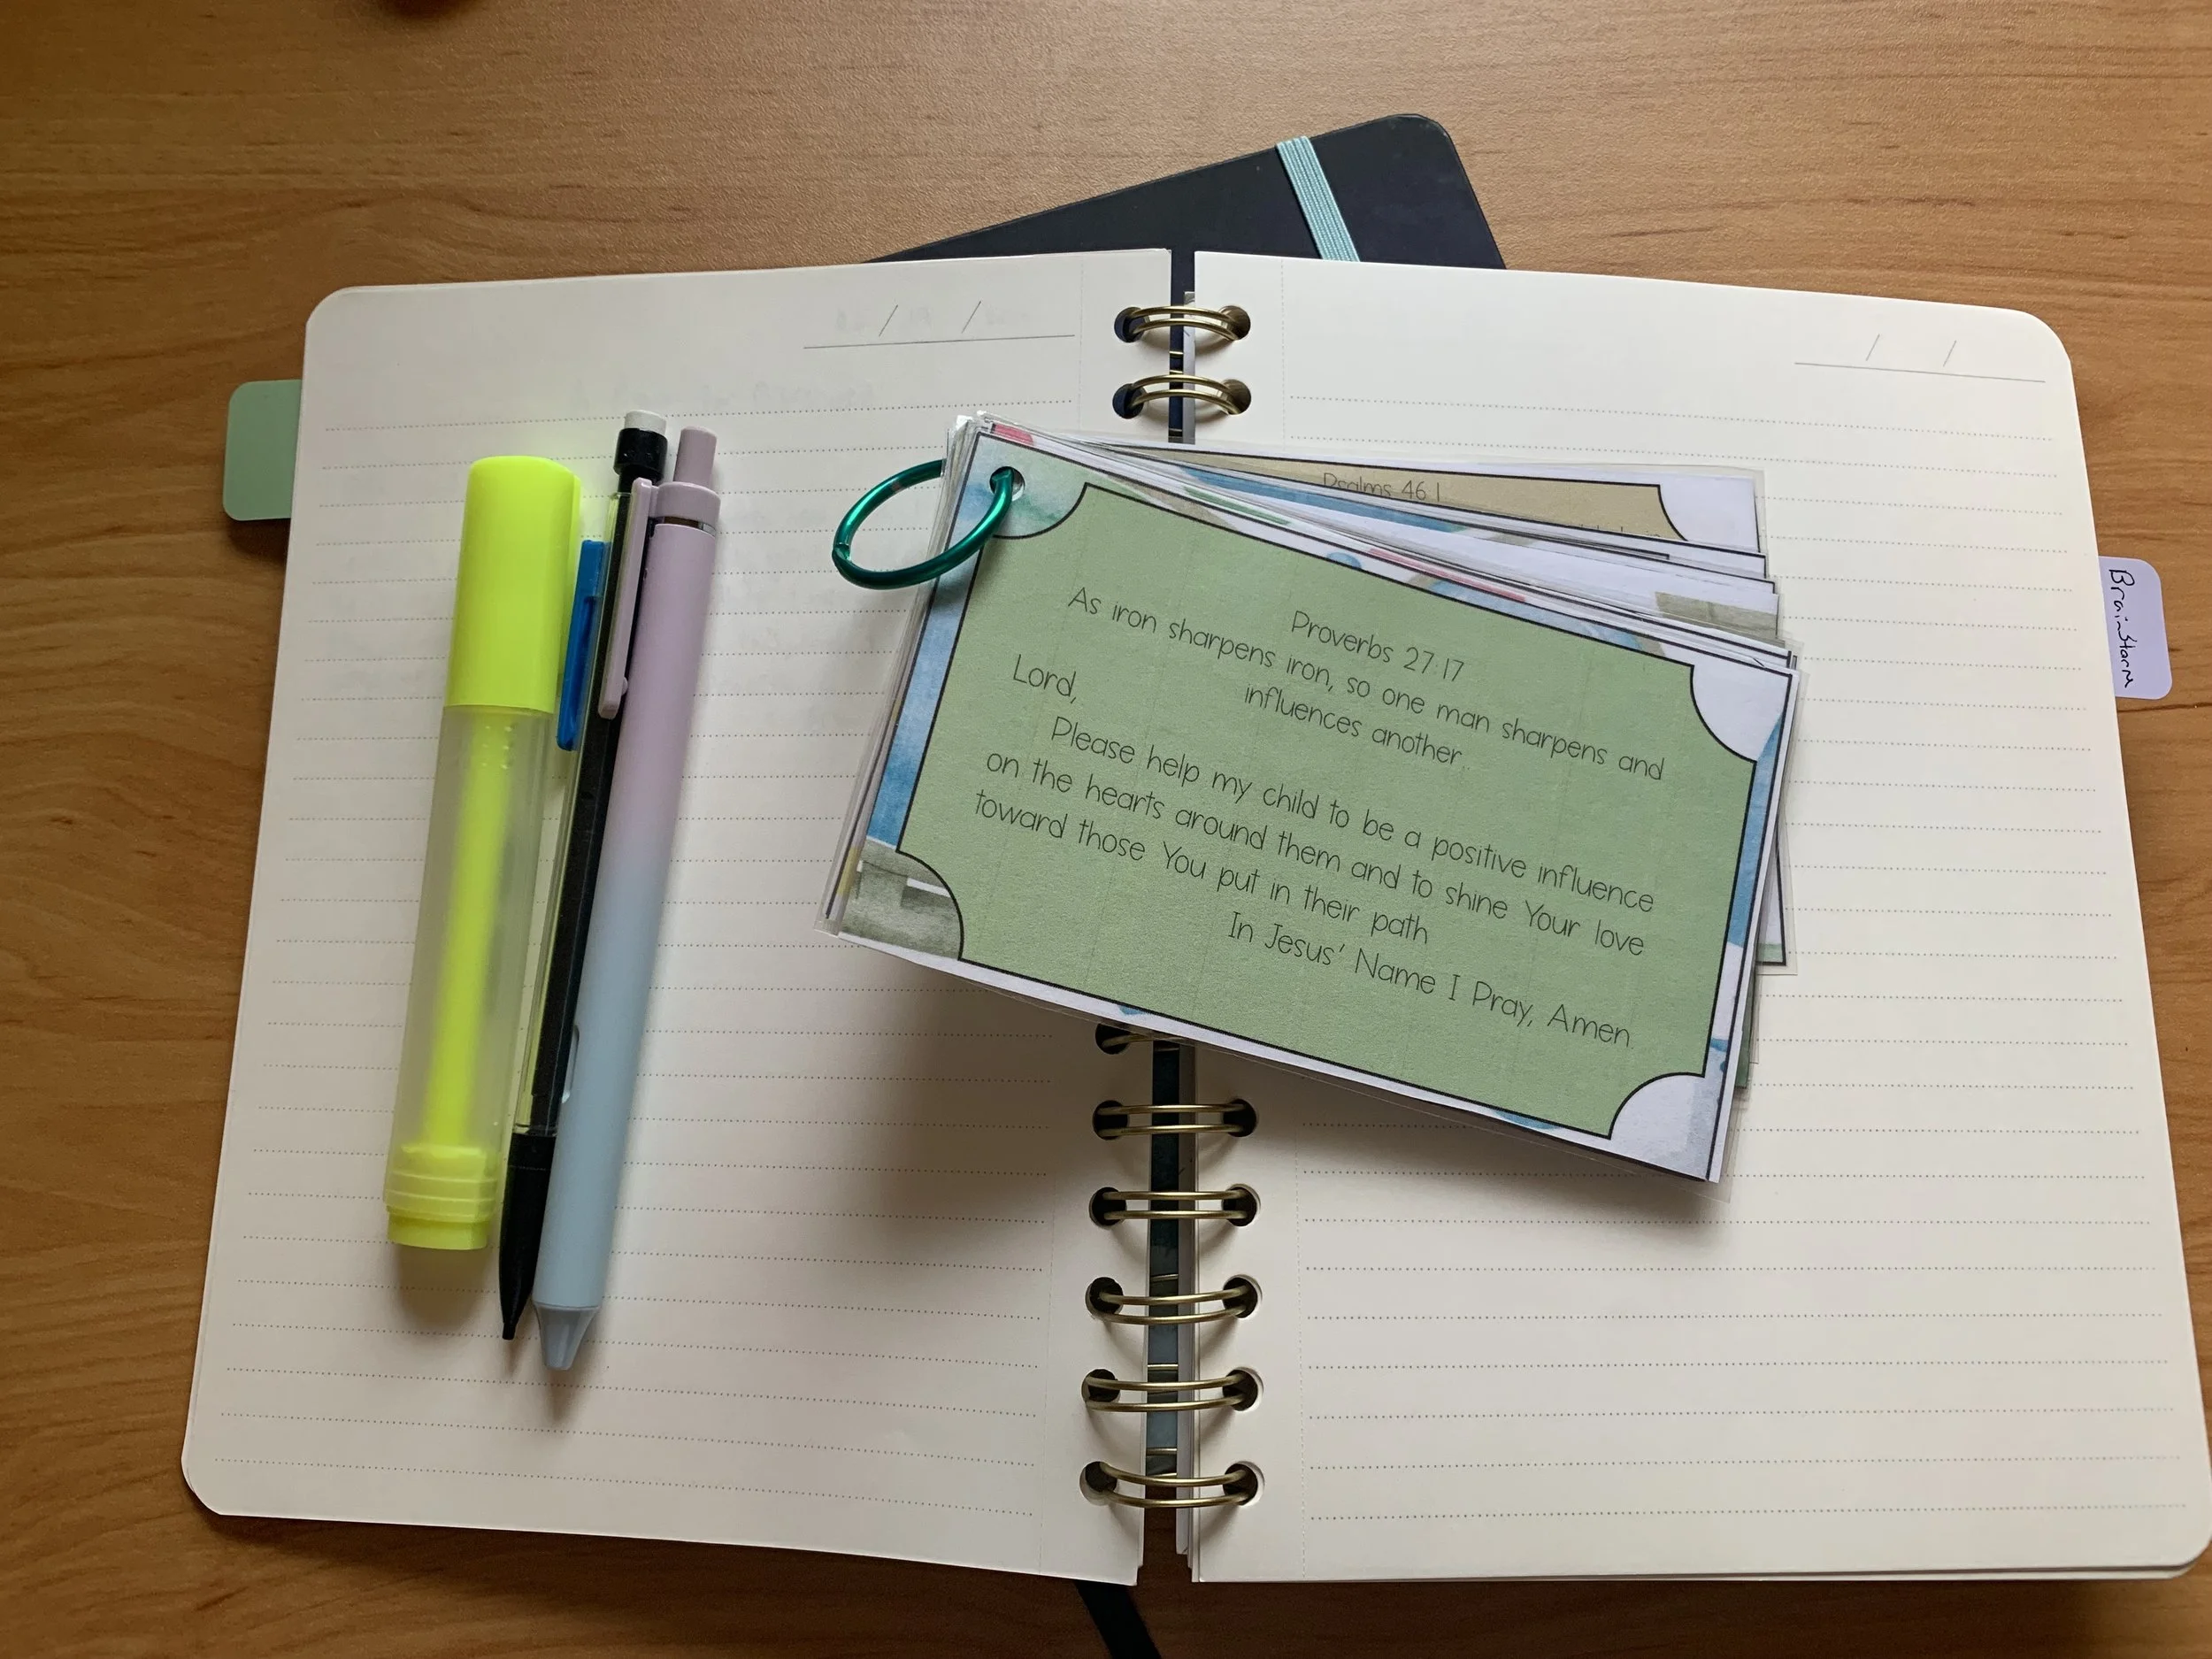 Psalms 46 1
Proverbs 27:17
As iron sharpens iron, so one man sharpens and
influences another.
Lord,
Please help my child to be a positive influence
on the hearts around them and to shine Your love
toward those You put in their path
In Jesus' Name I Pray, Amen.
Brainstorm